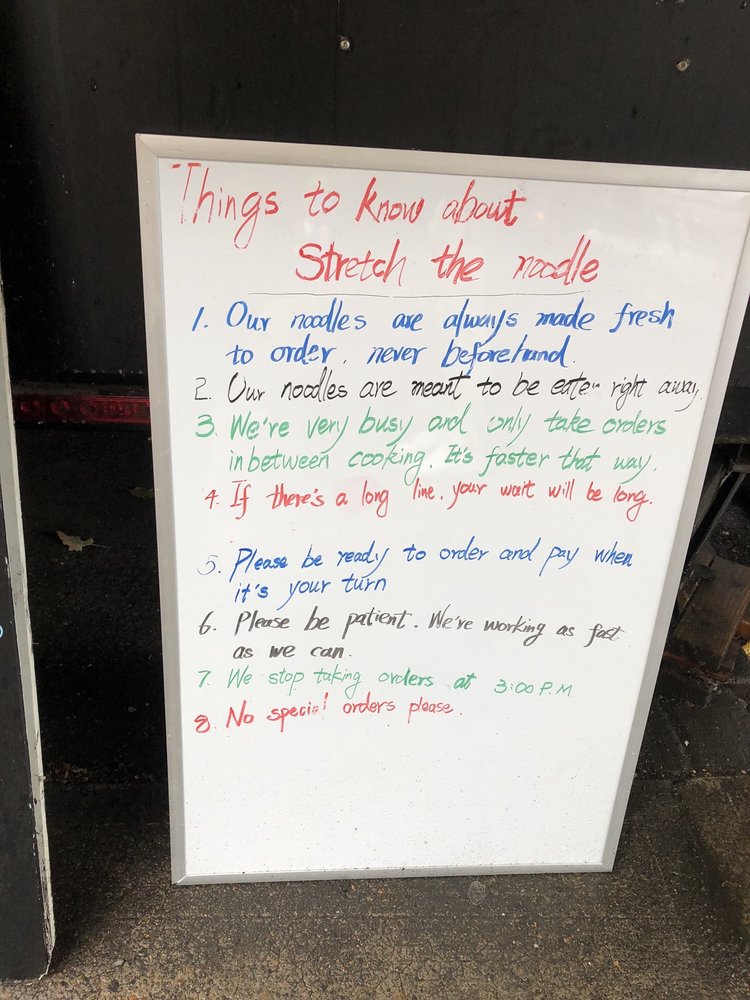 Things to know about
Stretch the noodle
1. Our noodles are always made fresh
to order, never beforehand.
2. Our noodles are meant to be eaten right away.
3. We're very busy and only take orders
inbetween cooking. It's faster that way.
4. If there's a long line, your wait will be long.
5. Please be ready to order and pay when
it's your turn
6. Please be patient. We're working as fast
as we can.
7. We stop taking orders at 3:00 P.M
8. No special orders please.